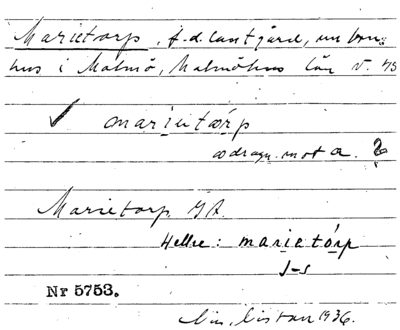 Marietorp, f.d. lantgård, nu bon-
hus i Malmö, Malmöhus län
✓ marietorp
odragn. mot a. ?
Marietorp JA.
Hellre: marietórp
J-s
Nr 5753.
1936.